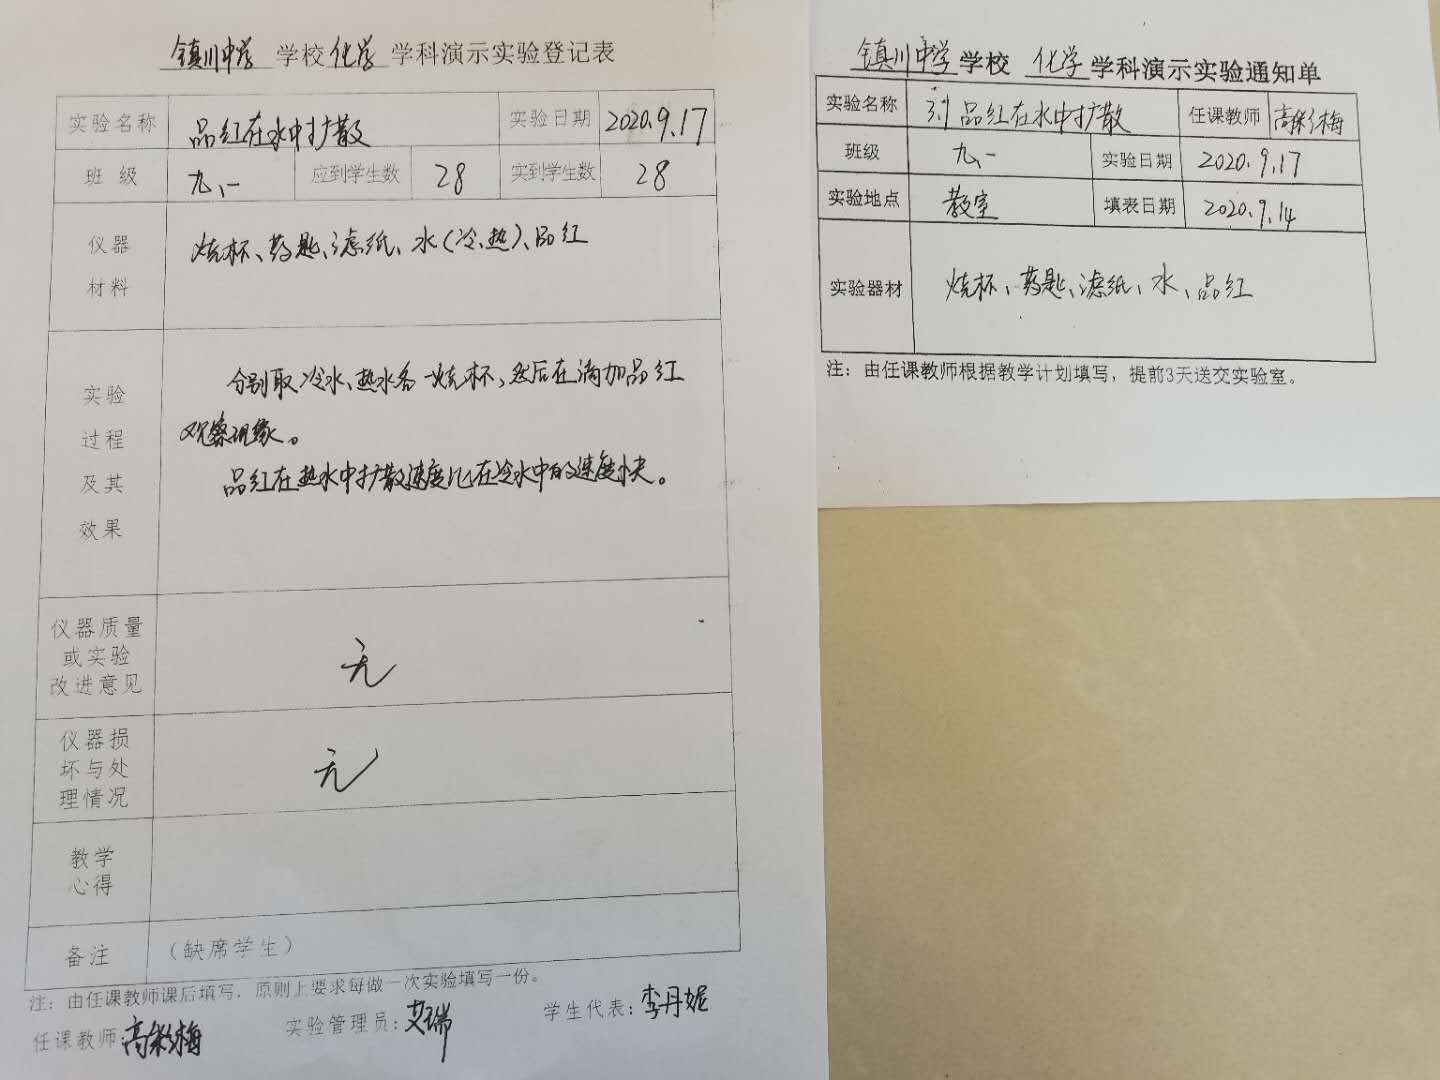 镇川中学 学校 化学 学科演示实验登记表
实验名称 品红在水中扩散 实验日期 2020.9.17
班级 九、一 应到学生数 28 实到学生数 28
仪器
材料
烧杯、药匙、滤纸、水(冷、热)、品红
实验
过程
及其
效果
分别取冷水、热水各一烧杯,然后在滴加品红
观察现象。
品红在热水中扩散速度比在冷水中的速度快。
仪器质量
或实验
改进意见
无
仪器损
坏与处
理情况
无
教学
心得
备注 (缺席学生)
注:由任课教师课后填写,原则上要求每做一次实验填写一份。
任课教师:高彩梅 实验管理员:艾瑞 学生代表:李丹妮
镇川中学 学校 化学 学科演示实验通知单
实验名称 品红在水中扩散 任课教师 高彩梅
班级 九、一 实验日期 2020.9.17
实验地点 教室 填表日期 2020.9.14
实验器材 烧杯、药匙、滤纸、水、品红
注:由任课教师根据教学计划填写,提前3天送交实验室。